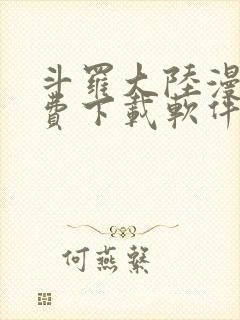 斗羅大陸漫
費下載軟件
何燕繄